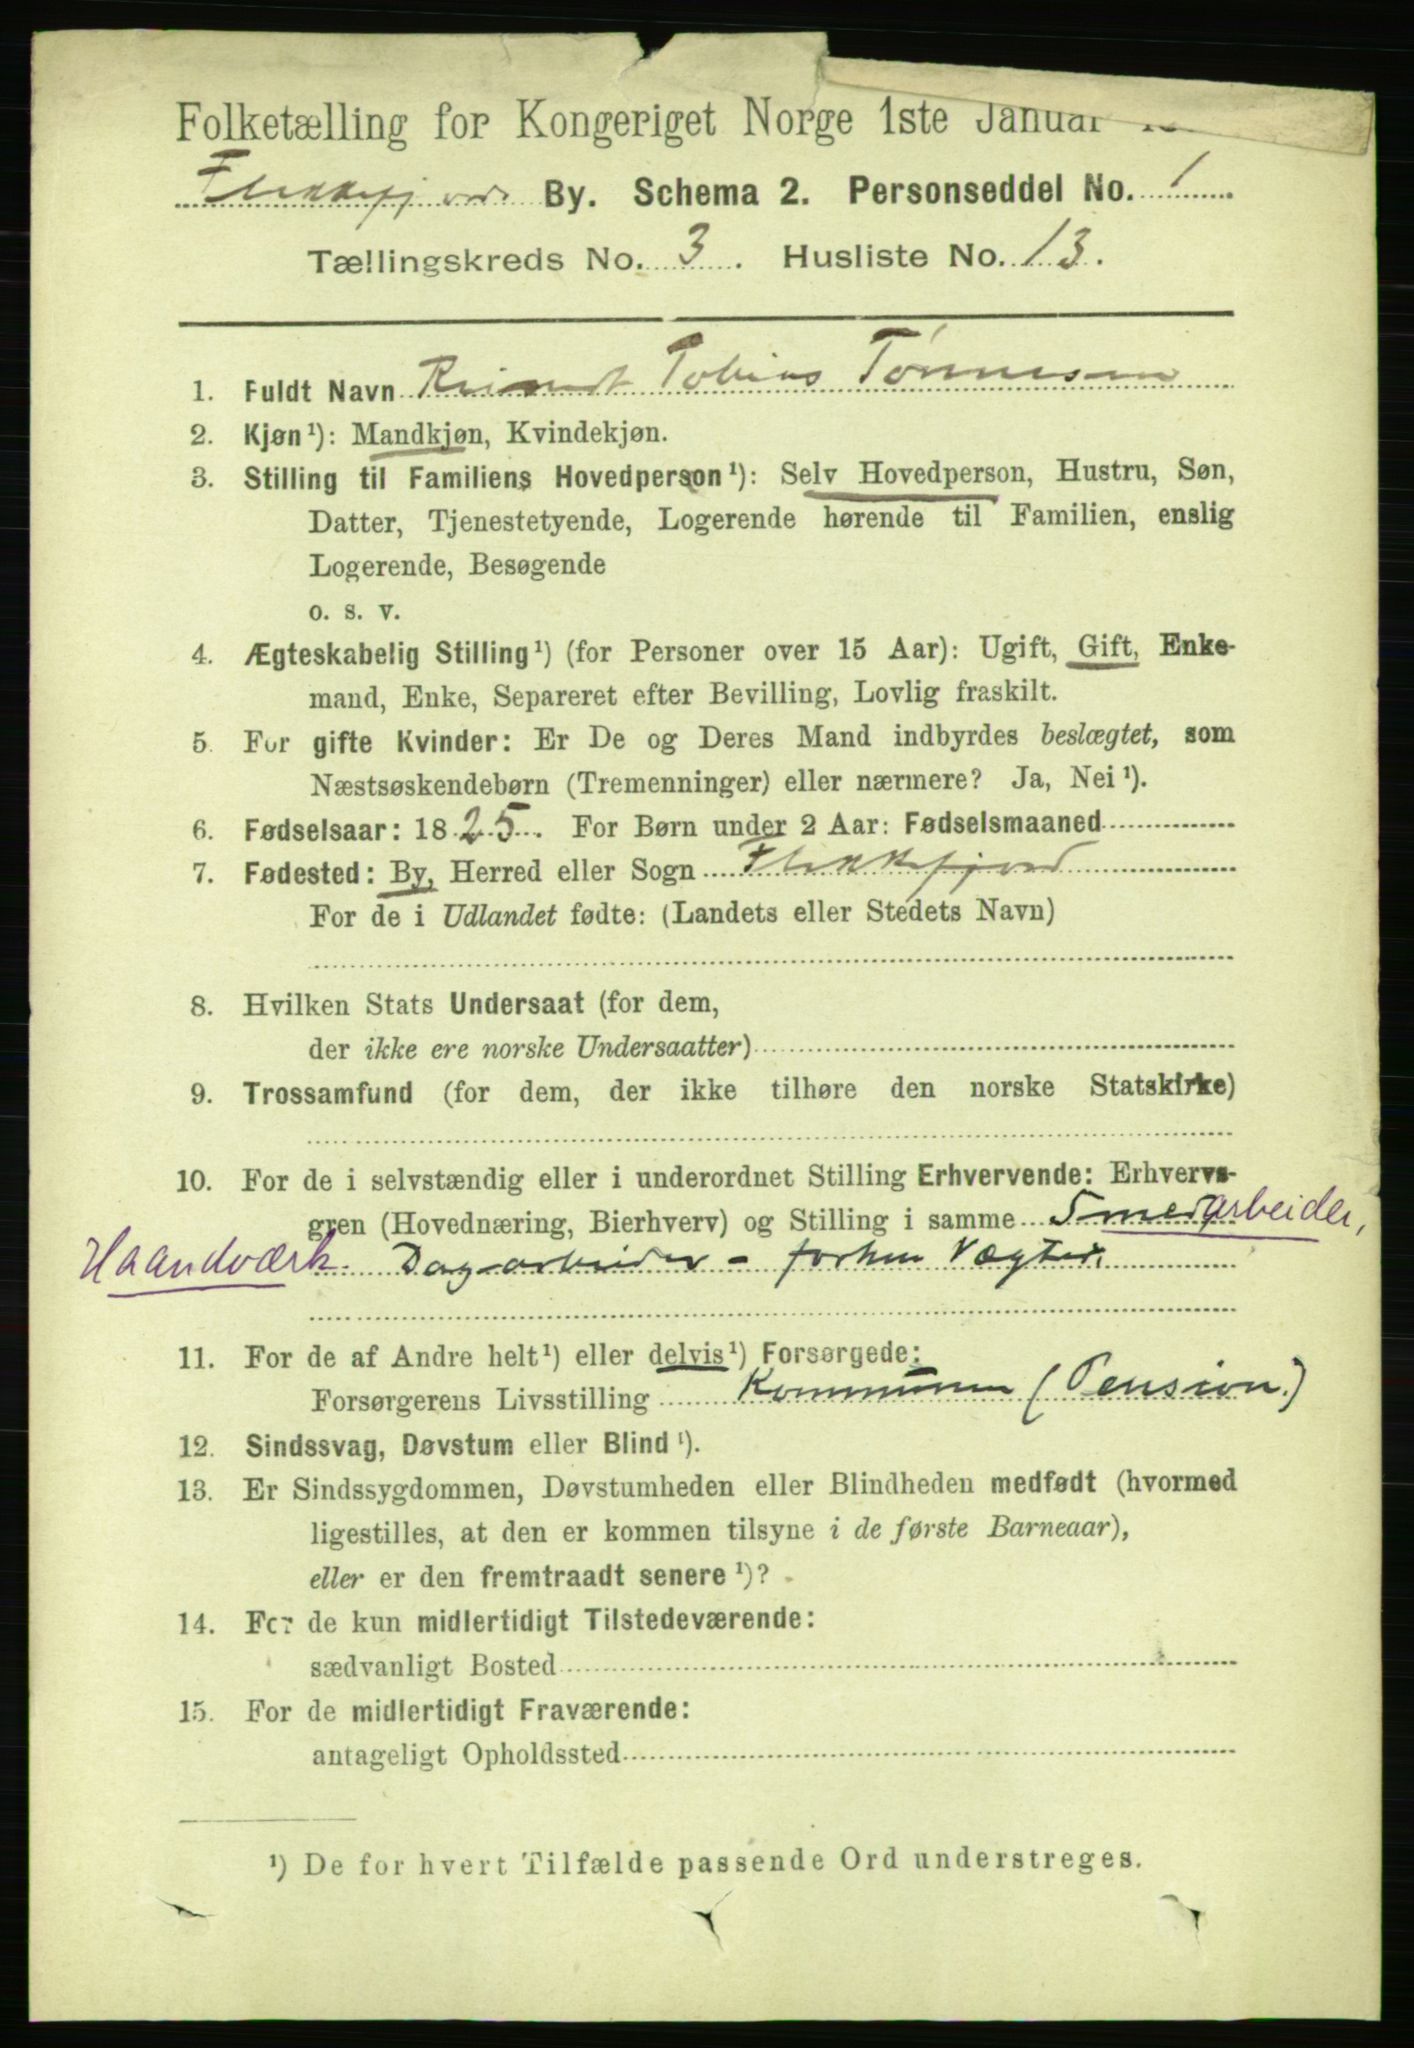 Folketælling for Kongeriget Norge 1ste Januar
Flekkefjord By. Schema 2. Personseddel No. 1
Tællingskreds No. 3. Husliste No. 13.
1. Fuldt Navn Reinert Tobias Tønnesen
2. Kjøn¹): Mandkjøn, Kvindekjøn.
3. Stilling til Familiens Hovedperson¹): Selv Hovedperson, Hustru, Søn,
Datter, Tjenestetyende, Logerende hørende til Familien, enslig
Logerende, Besøgende
o. s. v.
4. Ægteskabelig Stilling¹) (for Personer over 15 Aar): Ugift, Gift, Enke-
mand, Enke, Separeret efter Bevilling, Lovlig fraskilt.
5. For gifte Kvinder: Er De og Deres Mand indbyrdes beslægtet, som
Næstsøskendebørn (Tremenninger) eller nærmere? Ja, Nei¹).
6. Fødselsaar: 1825. For Børn under 2 Aar: Fødselsmaaned
7. Fødested: By, Herred eller Sogn Flekkefjord
For de i Udlandet fødte: (Landets eller Stedets Navn)
8. Hvilken Stats Undersaat (for dem,
der ikke ere norske Undersaatter)
9. Trossamfund (for dem, der ikke tilhøre den norske Statskirke)
10. For de i selvstændig eller i underordnet Stilling Erhvervende: Erhvervs-
gren (Hovednæring, Bierhverv) og Stilling i samme Smedarbeider,
Haandværk. Dagarbeider - forhen Vægter.
11. For de af Andre helt¹) eller delvis¹) Forsørgede:
Forsørgerens Livsstilling Kommunen (Pension.)
12. Sindssvag, Døvstum eller Blind¹).
13. Er Sindssygdommen, Døvstumheden eller Blindheden medfødt (hvormed
ligestilles, at den er kommen tilsyne i de første Barneaar),
eller er den fremtraadt senere¹)?
14. For de kun midlertidigt Tilstedeværende:
sædvanligt Bosted
15. For de midlertidigt Fraværende:
antageligt Opholdssted
¹) De for hvert Tilfælde passende Ord understreges.